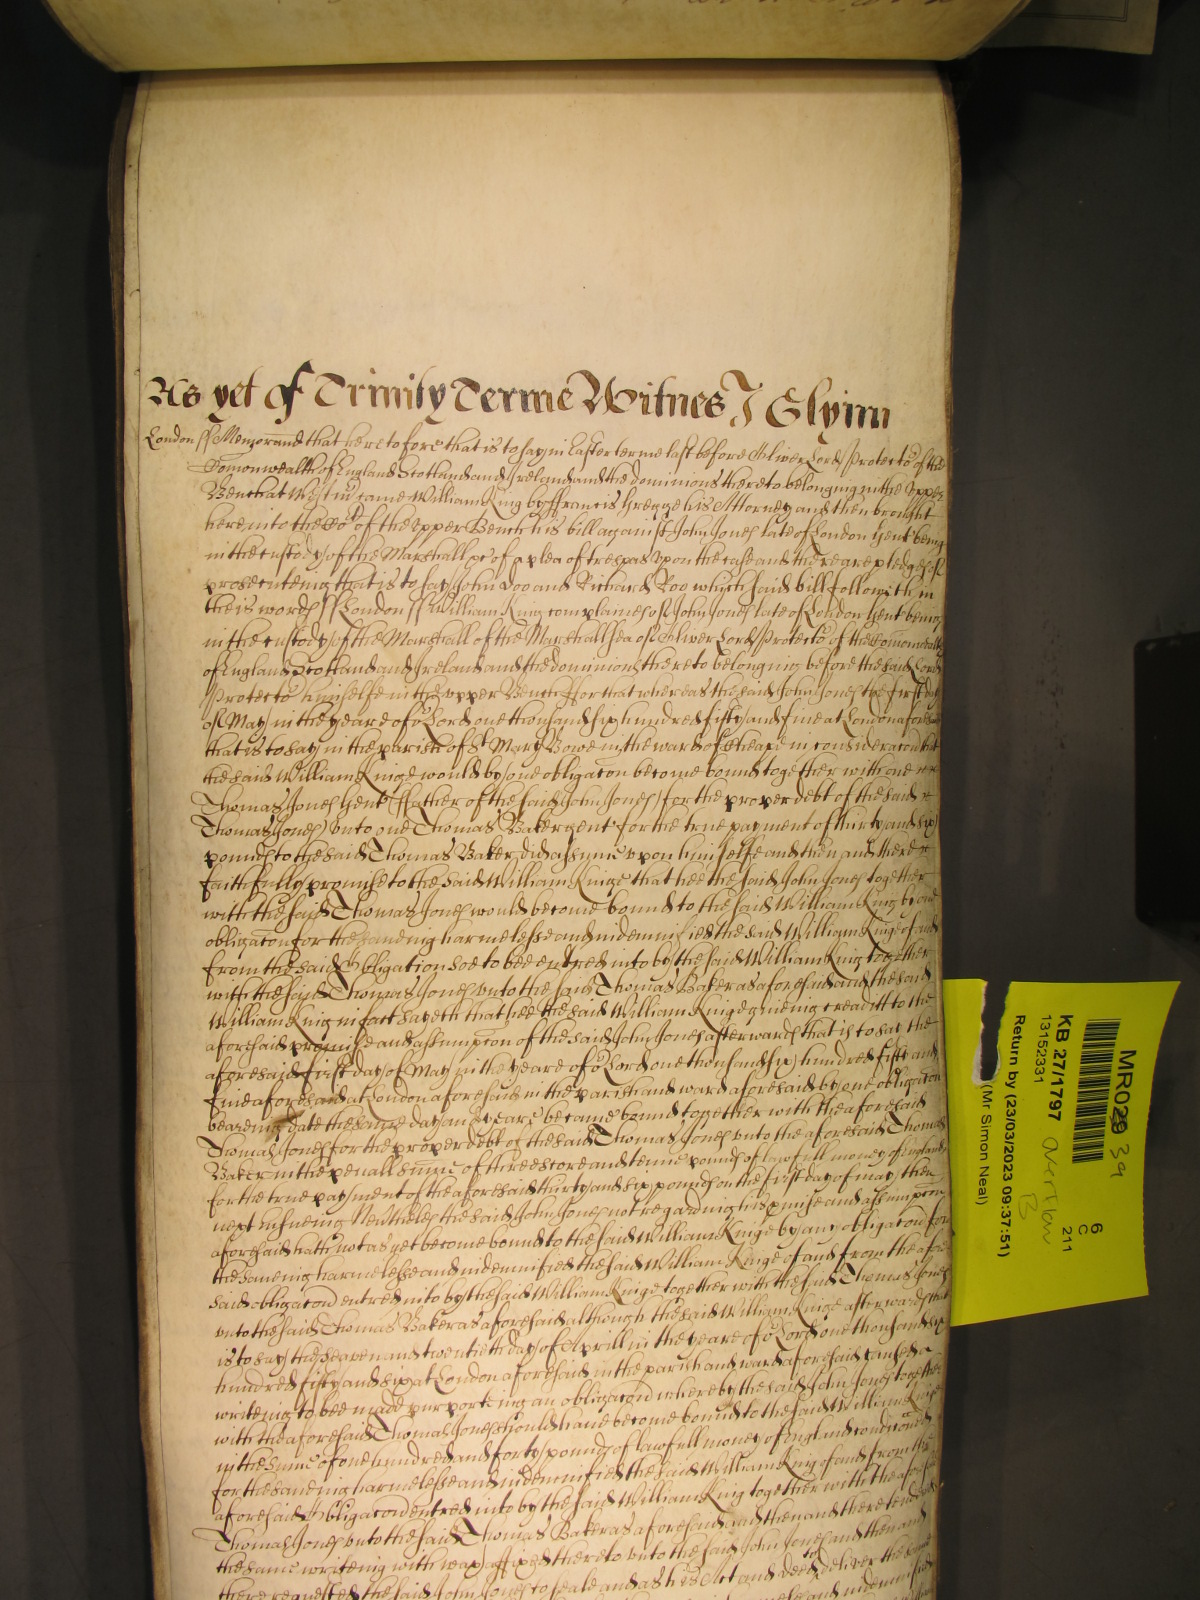 As yet of Trinity Terme Witnes J Glynn
London ss Memorand that heretofore that is to say in Easter terme last before Oliver Lord Protector of the
Comonwealth of England Scotland and Ireland and the dominions thereto belonging in the Upper
Bench at Westmr came William King by ffrancis Gregge his Attorney and then brought
here into the Cort of the Upper Bench his bill against John Jones late of London Gent being
in the custody of the Marshall &c of a plea of trespas upon the case and there are pledges of
prosecuteing that is to say John Doo and Richard Roo which said bill followeth in
theis words ss London ss William King complaines of John Jones late of London Gent being
in the custody of the Marshall of the Marshallsea of Oliver Lord Protector of the Comonwealth
of England Scotland and Ireland and the dominions thereto belonging before the said Lord
Protector himselfe in the upper Bench ffor that whereas the said John Jones the first day
of May in the yeare of or Lord one thousand six hundred fifty and five at London aforesaid
that is to say in the parish of St Mary Bowe in the ward of Cheape in consideracon that
the said William Kinge would by one obligacon become bound together with one
Thomas Jones Gent (ffather of the said John Jones) for the proper debt of the said
Thomas Jones unto one Thomas Baker gent for the true payment of thirty and six
pounds to the said Thomas Baker did assume upon himselfe and then and there
faithfully promise to the said William Kinge that hee the said John Jones together
with the said Thomas Jones would become bound to the said William King by one
obligacon for the saveing harmelesse and indemnified the said William Kinge of and
from the said Obligation soe to bee entred into by the said William King together
with the said Thomas Jones unto the said Thomas Baker as aforesaid and the said
William King in fact sayeth that hee the said William Kinge giveing creaditt to the
aforesaid promise and assumpcon of the said John Jones afterwards that is to say the
aforesaid first day of May in the yeare of or Lord one thousand six hundred fifty and
five aforesaid at London aforesaid in the parish and ward aforesaid by one obligacon
beareing date the same day and yeare became bound together with the aforesaid
Thomas Jones for the proper debt of the said Thomas Jones unto the aforesaid Thomas
Baker in the penall summe of threescore and tenne pounds of lawfull money of England
for the true payment of the aforesaid thirty and six pounds on the first day of may then
next ensueing Neverthelesse the said John Jones not regarding his pmise and assumpcon
aforesaid hath not as yet become bound to the said William Kinge by any obligacon for
the saveing harmelesse and indemnified the said William Kinge of and from the afore
said obligacon entred into by the said William Kinge together with the said Thomas Jones
unto the said Thomas Baker as aforesaid although the said William Kinge afterwards that
is to say the seaven and twentieth day of Aprill in the yeare of or Lord one thousand six
hundred fifty and six at London aforesaid in the parish and ward aforesaid caused a
writeing to bee made purporteing an obligacon whereby the said John Jones together
with the aforesaid Thomas Jones should have become bound to the said William Kinge
in the sume of one hundred and forty pounds of lawfull money of England condiconed
for the saveing harmelesse and indemnified the said William King of and from the
aforesaid Obligacon entred into by the said William King together with the aforesaid
Thomas Jones unto the said Thomas Baker as aforesaid and then and there tendred
the same writeing with wax affixed thereto unto the said John Jones and then and
there requested the said John Jones to seale and as his Act and deed to deliver the same
MR029 39
KB 27/1797
13152331
Overflow
B
6
C
211
Return by (23/03/2023 09:37:51)
(Mr Simon Neal)